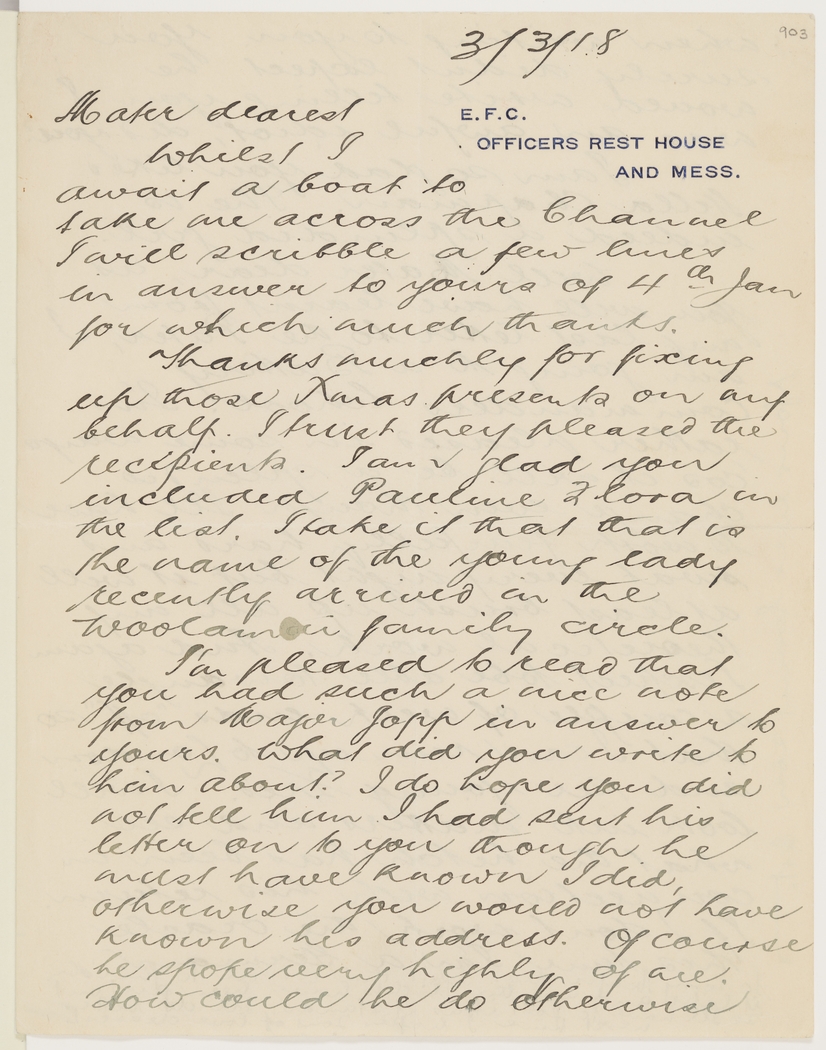 903
3/3/18
E.F.C.
OFFICERS REST HOUSE
AND MESS.
Mater dearest
Whilst I
await a boat to
take me across the Channel
I will scribble a few lines
in answer to yours of 4th Jan
for which much thanks.
Thanks muchly for fixing
up those Xmas presents on my
behalf. I trust they pleased the
recipients. I am glad you
included Pauline Flora in
the list. I take it that that is
the name of the young lady
recently arrived in the
family circle.
I'm pleased to read that
you had such a nice note
from Major Jopp in answer to
yours. What did you write to
him about? I do hope you did
not tell him I had sent his
letter on to you though he
must have known I did,
otherwise you would not have
known his address. Of course
he spoke very highly of me.
How could he do otherwise